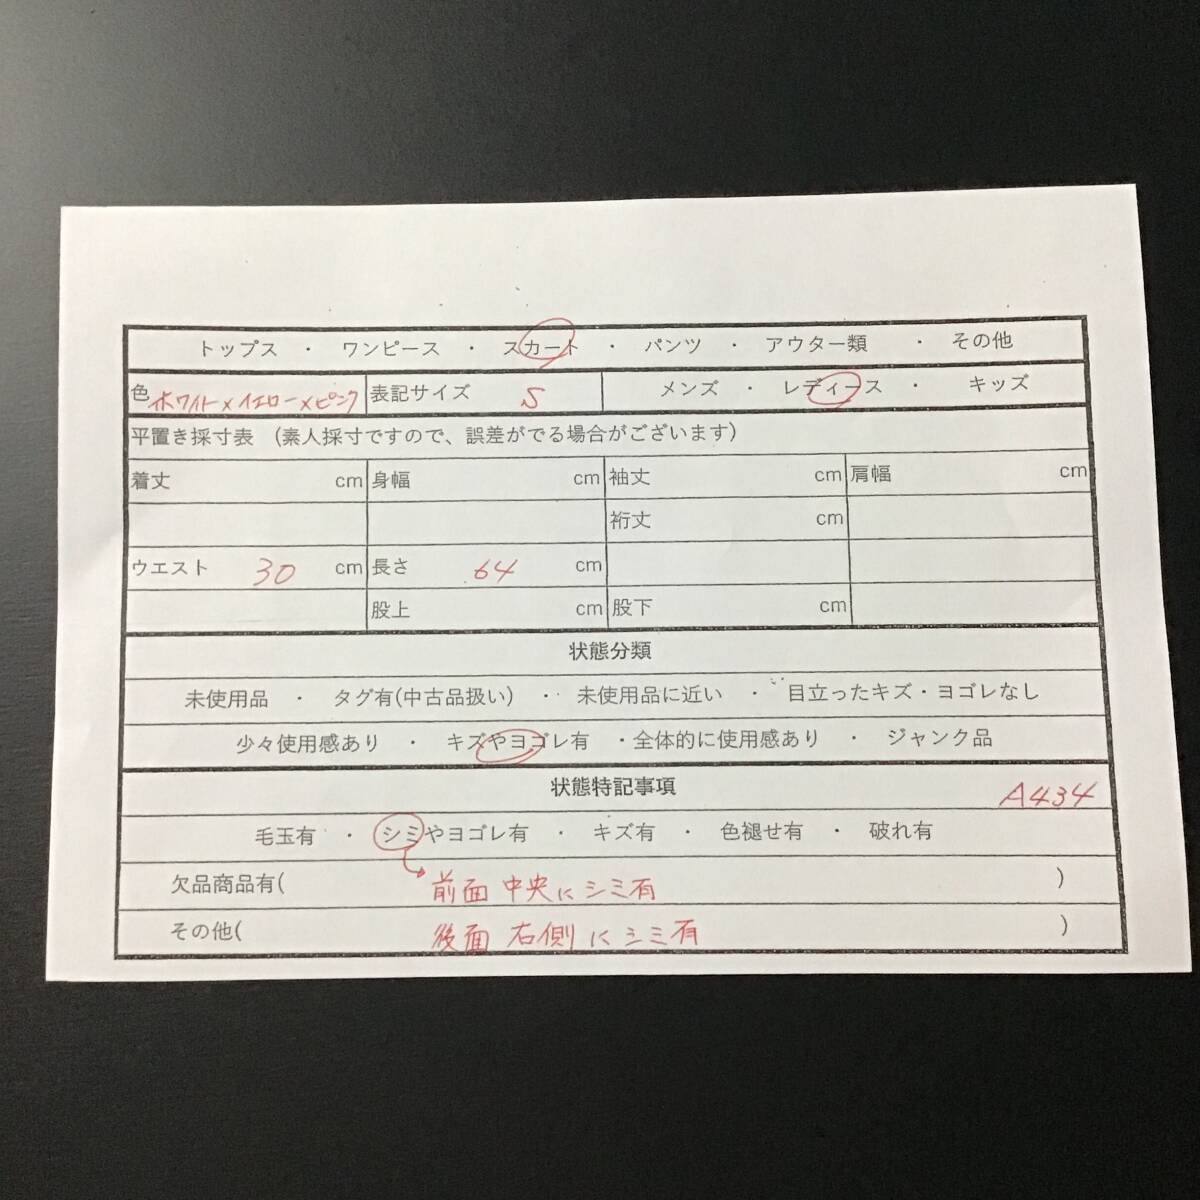 トップス ・ ワンピース ・ スカート ・ パンツ ・ アウター類 ・ その他
色 ホワイト×イエロー×ピンク 表記サイズ S メンズ ・ レディース ・ キッズ
平置き採寸表 (素人採寸ですので、誤差がでる場合がございます)
着丈 cm 身幅 cm 袖丈 cm 肩幅 cm
裄丈 cm
ウエスト 30 cm 長さ 64 cm
股上 cm 股下 cm
状態分類
未使用品 ・ タグ有(中古品扱い) ・ 未使用品に近い ・ 目立ったキズ・ヨゴレなし
少々使用感あり ・ キズやヨゴレ有 ・全体的に使用感あり ・ ジャンク品
状態特記事項 A434
毛玉有 ・ シミやヨゴレ有 ・ キズ有 ・ 色褪せ有 ・ 破れ有
欠品商品有( 前面 中央に シミ有 )
その他( 後面 右側に シミ有 )